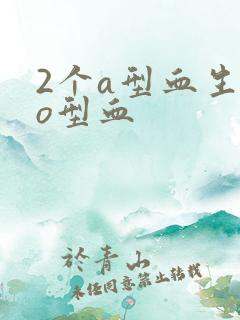 2个a型血生
o型血
於青山
未经同意禁止转载